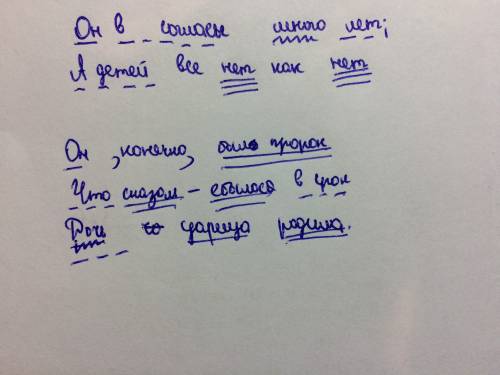 Он в согласьи много лет;
А детей все нет как нет
Он, конечно, был пророк
Что сказал - сбылося в срок
Дочь царица родила.